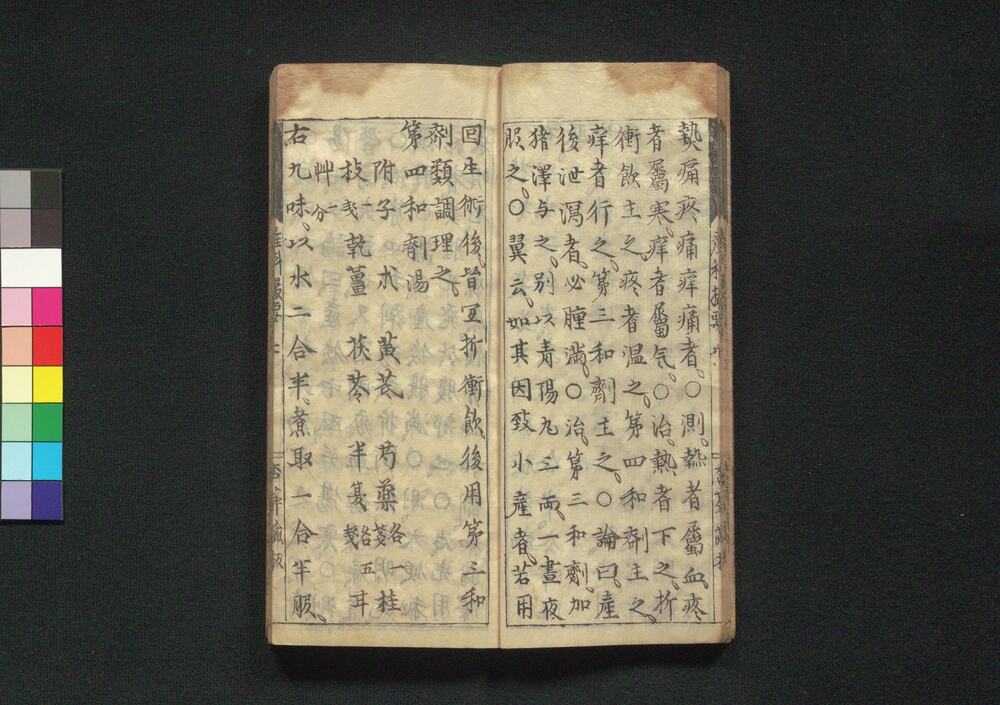 熱痛疼痛痒痛者。○測。熱者屬血。疼
者屬寒。痒者屬气。○治。熱者下之。折
衝飲主之。疼者温之。第四和劑主之。
痒者行之。第三和劑主之。○論曰。產
後泄瀉者。必腫滿。○治。第三和劑。加
猪澤与之。別以青陽丸三兩。一晝夜
服之。○翼云。如其因致小產者。若用
回生術後。皆宜折衝飲。後用第三和
劑類調理之。
第四和劑湯
附子 朮 黃芪 芍藥各一 桂
枝一戔 乾薑 茯苓 半夏各五
艸一分
右九味。以水二合半。煮取一合半服。